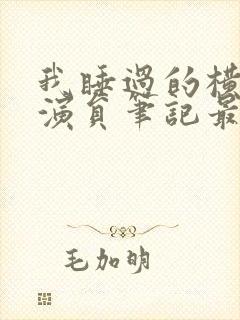 我睡過的橫
演員筆記最
毛加明